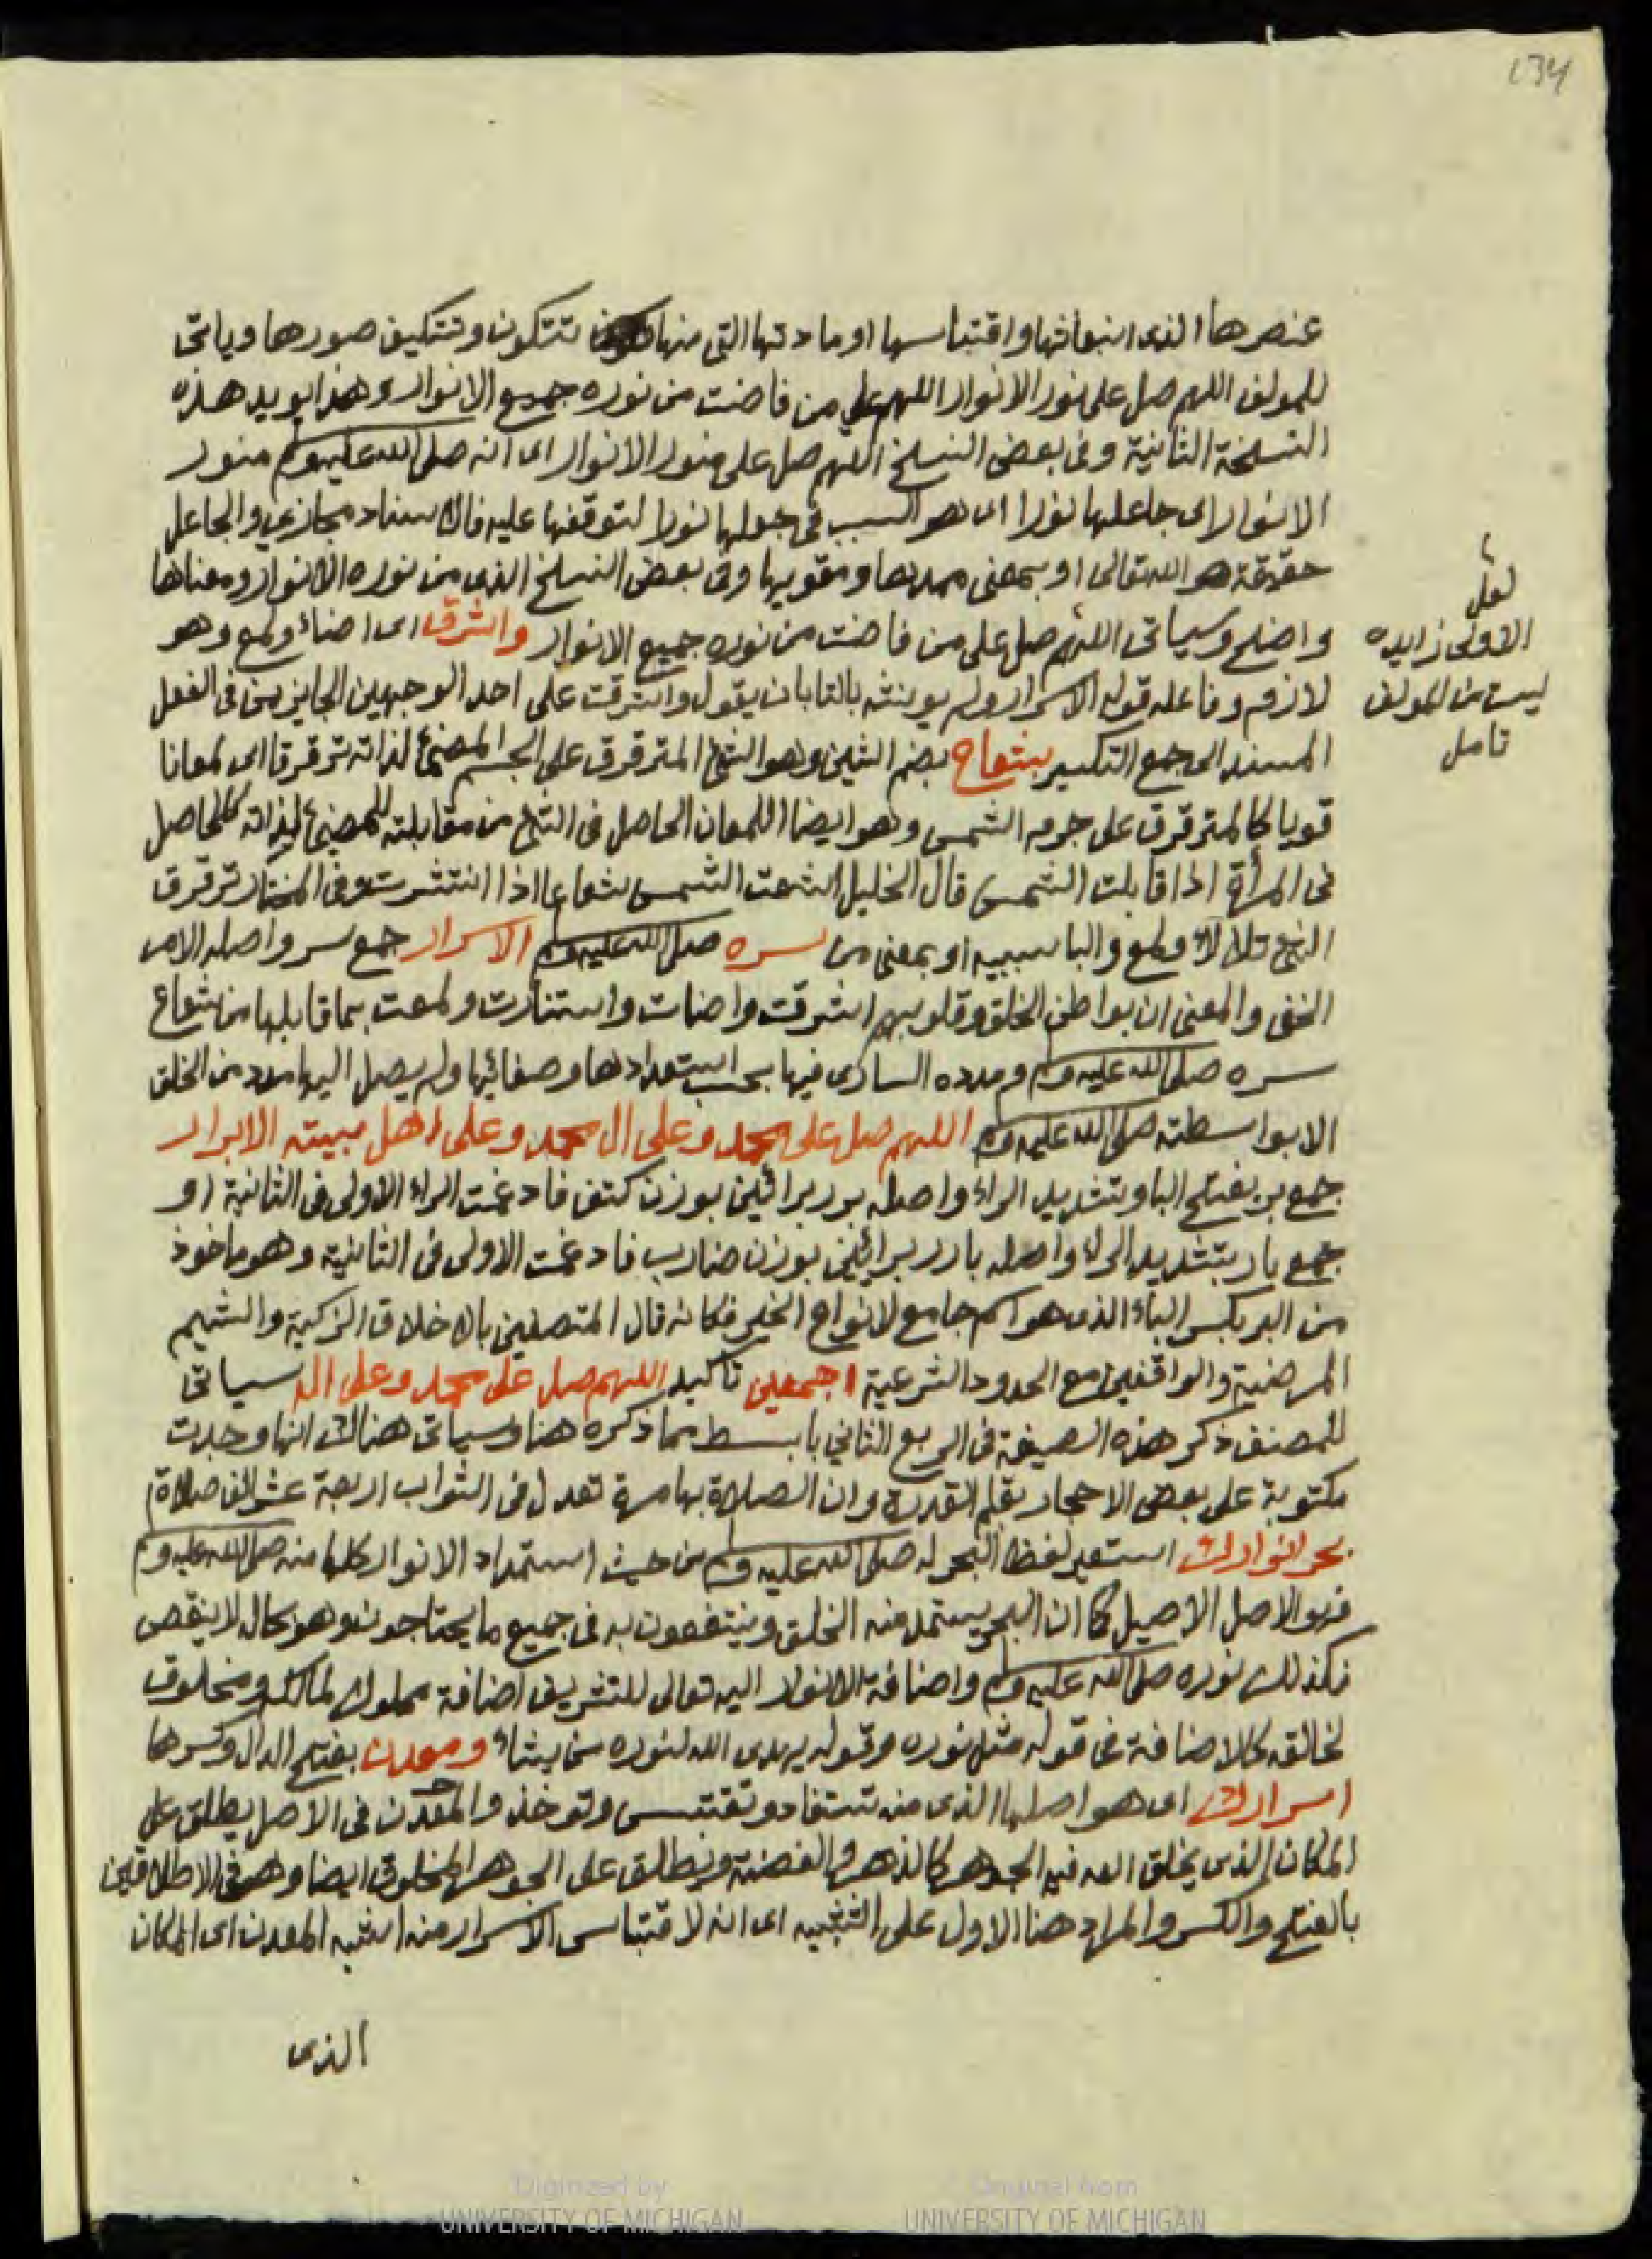 134
عنصرها الذى انبعاثها واقتباسها او مادتها التى منها تتكون وتتكيف صورها وياتى
للمولف اللهم صل على نور الانوار اللهم على من فاضت من نوره جميع الانوار وهذا يويد هذه
النسخة الثانية وفى بعض النسخ اللهم صل على منور الانوار اى انه صلى الله عليه وم منور
الانوار اى جاعلها نورا اى هو السبب فى جعلها نورا لتوقفها عليه فالاسناد مجازي والجاعل
حقيقة هو الله تعالى او بمعنى ممدها ومقويها وفى بعض النسخ الذى من نوره الانوار ومعناها
واضح وسياتى اللهم صل على من فاضت من نوره جميع الانوار واشرق اى اضاء ولمع وهو
لازم وفاعله قوله الاسرار ولم يونثه بالتا بان يقول واشرقت على احد الوجهين الجايزين فى الفعل
المسند الى جمع التكسير بشعاع بضم الشين وهو الشئ المترقرق على الجسم المضئ لذاته ترقرقا اى لمعانا
قويا كالمترقرق على جرم الشمس وهو ايضا اللمعان الحاصل فى الشئ من مقابلته للمضئ لذاته كالحاصل
فى المرأة اذا قابلت الشمس قال الخليل اشعت الشمس شعاعا اذا انتشرت وفى المختار ترقرق
الشئ تلالا ولمع والبا سببيه او بمعنى من سره صلى الله عليه وم الاسرار جمع سر واصله الامر
الخفى والمعنى ان بواطن الخلق وقلوبهم اشرقت واضات واستنارت ولمعت بما قابلها من شعاع
سره صلى الله عليه وم ومدده السارى فيها بحسب استعدادها وصفائها ولم يصل اليها مدد من الخلق
الا بواسطته صلى الله عليه وم اللهم صل على محمد وعلى ال محمد وعلى اهل بيته الابرار
جمع بر بفتح البا وبتشديد الراء واصله برر برائين بوزن كتف فادغمت الراء الاولى فى الثانية او
جمع بار بتشديد الراء واصله بارر برائين بوزن ضارب فادغمت الاولى فى الثانية وهو ماخوذ
من البر بكسر الباء الذى هو اسم جامع لانواع الخير فكانه قال المتصفين بالاخلاق الزكية والشيم
المرضية والواقفين مع الحدود الشرعية اجمعين تاكيد اللهم صل على محمد وعلى اله سياتى
للمصنف ذكر هذه الصيغة فى الربع الثاني بابسط مما ذكره هنا وسياتى هنالك انها وجدت
مكتوبة على بعض الاحجار بقلم القدرة وان الصلاة بها مرة تعدل فى الثواب اربعة عشر الف صلاة
بحر انوارك استعير لفظ البحر له صلى الله عليه وم من حيث استمداد الانوار كلها منه صلى الله عليه وم
فهو الاصل الاصيل كما ان البحر يستمد منه الخلق وينتفعون به فى جميع ما يحتاجونه وهو بحاله لا ينقص
فكذلك نوره صلى الله عليه وم واضافة الانوار اليه تعالى للتشريف اضافة مملوك لمالكه ومخلوق
لخالقه كالاضافة فى قوله مثل نوره وقوله يهدى الله لنوره من يشاء ومعدن بفتح الدال وكسرها
اسرارك اى هو اصلها الذى منه تستفاد وتقتبس وتوخذ والمعدن فى الاصل يطلق على
المكان الذى يخلق الله فيه الجوهر كالذهب والفضة ويطلق على الجوهر المخلوق ايضا وهو فى الاطلاقين
بالفتح والكسر والمراد هنا الاول على التشبيه اى انه لاقتباس الاسرار منه اشبه المعدن اى المكان
الذى
لعل
الاولى زايده
ليست من المولف
تامل
Digitized by
UNIVERSITY OF MICHIGAN
Original from
UNIVERSITY OF MICHIGAN